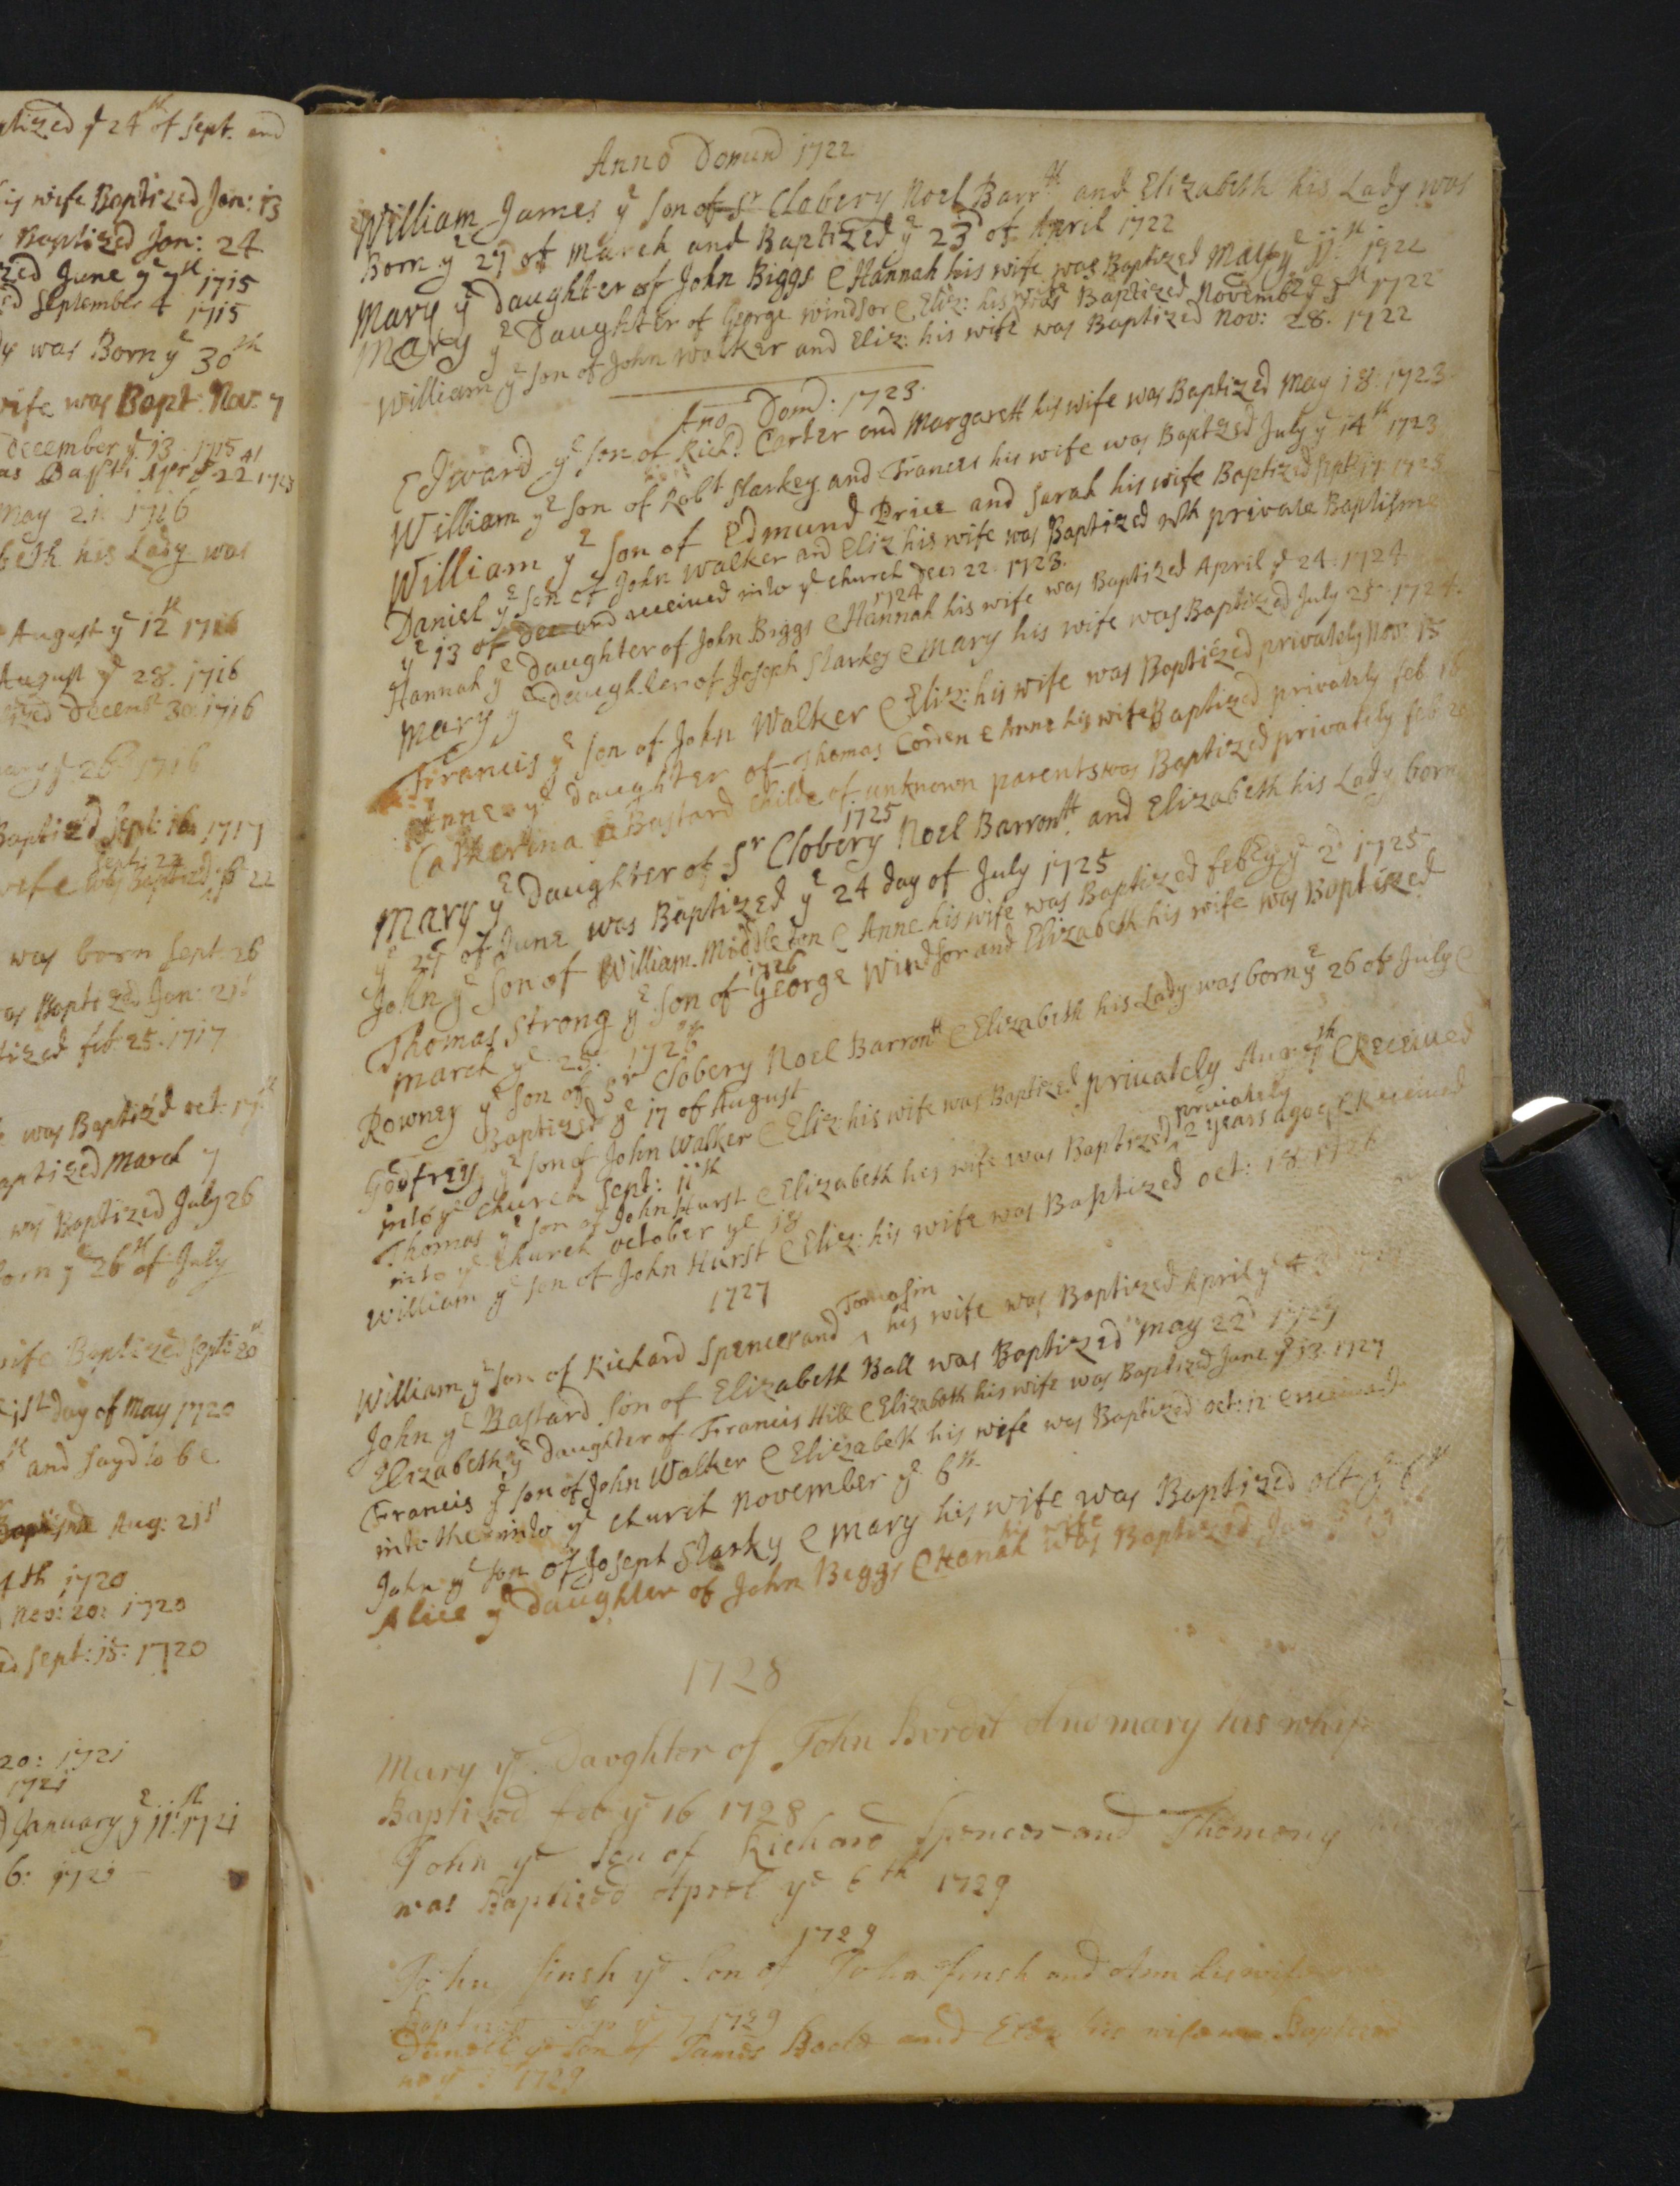 ptized ye 24th of Sept. and
his wife Baptized Jan: 13
Baptized Jan: 24
zed June ye 7th 1715
ed September 4 1715
was Born ye 30th
wife was Bapt: Nov: 7
December ye 13 1715
as Bapti Apr ye 22
May 21: 1716
beth his Lady was
August ye 12th 1716
August ye 28. 1716
ized Decembr 30: 1716
ary ye 26 1716
Baptized Sept: 16: 1717
Sept: 22
wife was Baptized 22
was born Sept 26
as Baptized Jan: 21st
tized feb: 25: 1717
was Baptiz'd oct: 17th
aptized March 7
was Baptized July 26
born ye 26th of July
wife Baptized Septr 20th
1st day of May 1720
and sayd to be
Aug: 21st
4th 1720
Nov: 20: 1720
ed Sept: 15: 1720
20: 1721
1721
January ye 11th 1721
6: 1721
Anno Domini 1722
William James ye son of Sr Clobery Noel Barrtt and Elizabeth his Lady was
Born ye 27 of March and Baptized ye 23d of April 1722
Mary ye Daughter of John Biggs & Hannah his wife was Baptized May ye 11th 1722
Mary ye Daughter of George Windsor & Eliz: his wife Baptized Novembr ye 5th 1722
William ye Son of John Walker and Eliz: his wife was Baptized Nov: 28. 1722
Ano Domd: 1723.
Edward ye son of Richd Carter and Margarett his wife was Baptized May 18: 1723
William ye Son of Robt Starkey and Frances his wife was Baptized July ye 14th 1723
William ye Son of Edmund Price and Sarah his wife Baptized Sept: 17 1723
Daniel ye Son of John Walker and Eliz his wife was Baptized wth private Baptisme
ye 13 of Dec and received into ye church Decr 22: 1723.
1724
Hannah ye Daughter of John Biggs & Hannah his wife was Baptized April ye 24: 1724
Mary ye Daughter of Joseph Starkey & Mary his wife was Baptized July 25: 1724.
Francis ye Son of John Walker & Eliz: his wife was Baptized privately Nov: 15
Anne ye daughter of Thomas Corren & Anne his wife Baptized privately feb 16
Catherina a Bastard Childe of unknown parents was Baptized privately feb
1725
Mary ye Daughter of Sr Clobery Noel Barrontt and Elizabeth his Lady born
ye 27 of June was Baptized ye 24 day of July 1725
John ye Son of William Middleton & Anne his wife was Baptized febry ye 2d 1725
1726
Thomas Strong ye Son of George Windsor and Elizabeth his wife was Baptized
March ye 25: 1726
Rowney ye Son of Sr Clobery Noel Barrontt & Elizabeth his Lady was born ye 26 of July &
Baptized ye 17 of August
Godfrey ye Son of John Walker & Eliz his wife was Baptized privately Aug 7th & Received
into ye church Sept: 11th
Thomas ye Son of John Hurst & Elizabeth his wife was Baptized privately 2 years agoe & Received
into ye Church october ye 18
William ye Son of John Hurst & Eliz: his wife was Baptized oct: 18 1726
1727
William ye Son of Richard Spencer and Tomasin his wife was Baptized April ye
John ye Bastard Son of Elizabeth Ball was Baptized May 22d 1727
Elizabeth ye Daughter of Francis Hill & Elizabeth his wife was Baptized June ye 13 1727
Francis ye Son of John Walker & Elizabeth his wife was Baptized oct: 12 & received
into the into ye church November ye 6th
John ye Son of Joseph Starky & Mary his wife was Baptized oct ye 6th
Alice ye daughter of John Biggs & Hanah his wife was Baptized Jan ye 19
1728
Mary ye Davghter of John Bvrdit And mary his whife
Baptized feb ye 16 1728
John ye Son of Richard Spencer and Thomeny
was Baptized Aprel ye 6th 1729
1729
John finsh ye Son of John finsh and Ann his wife was
Baptized ye 7 1729
Daniell ye Son of James and Eliz his wife was Baptized
ye 1729